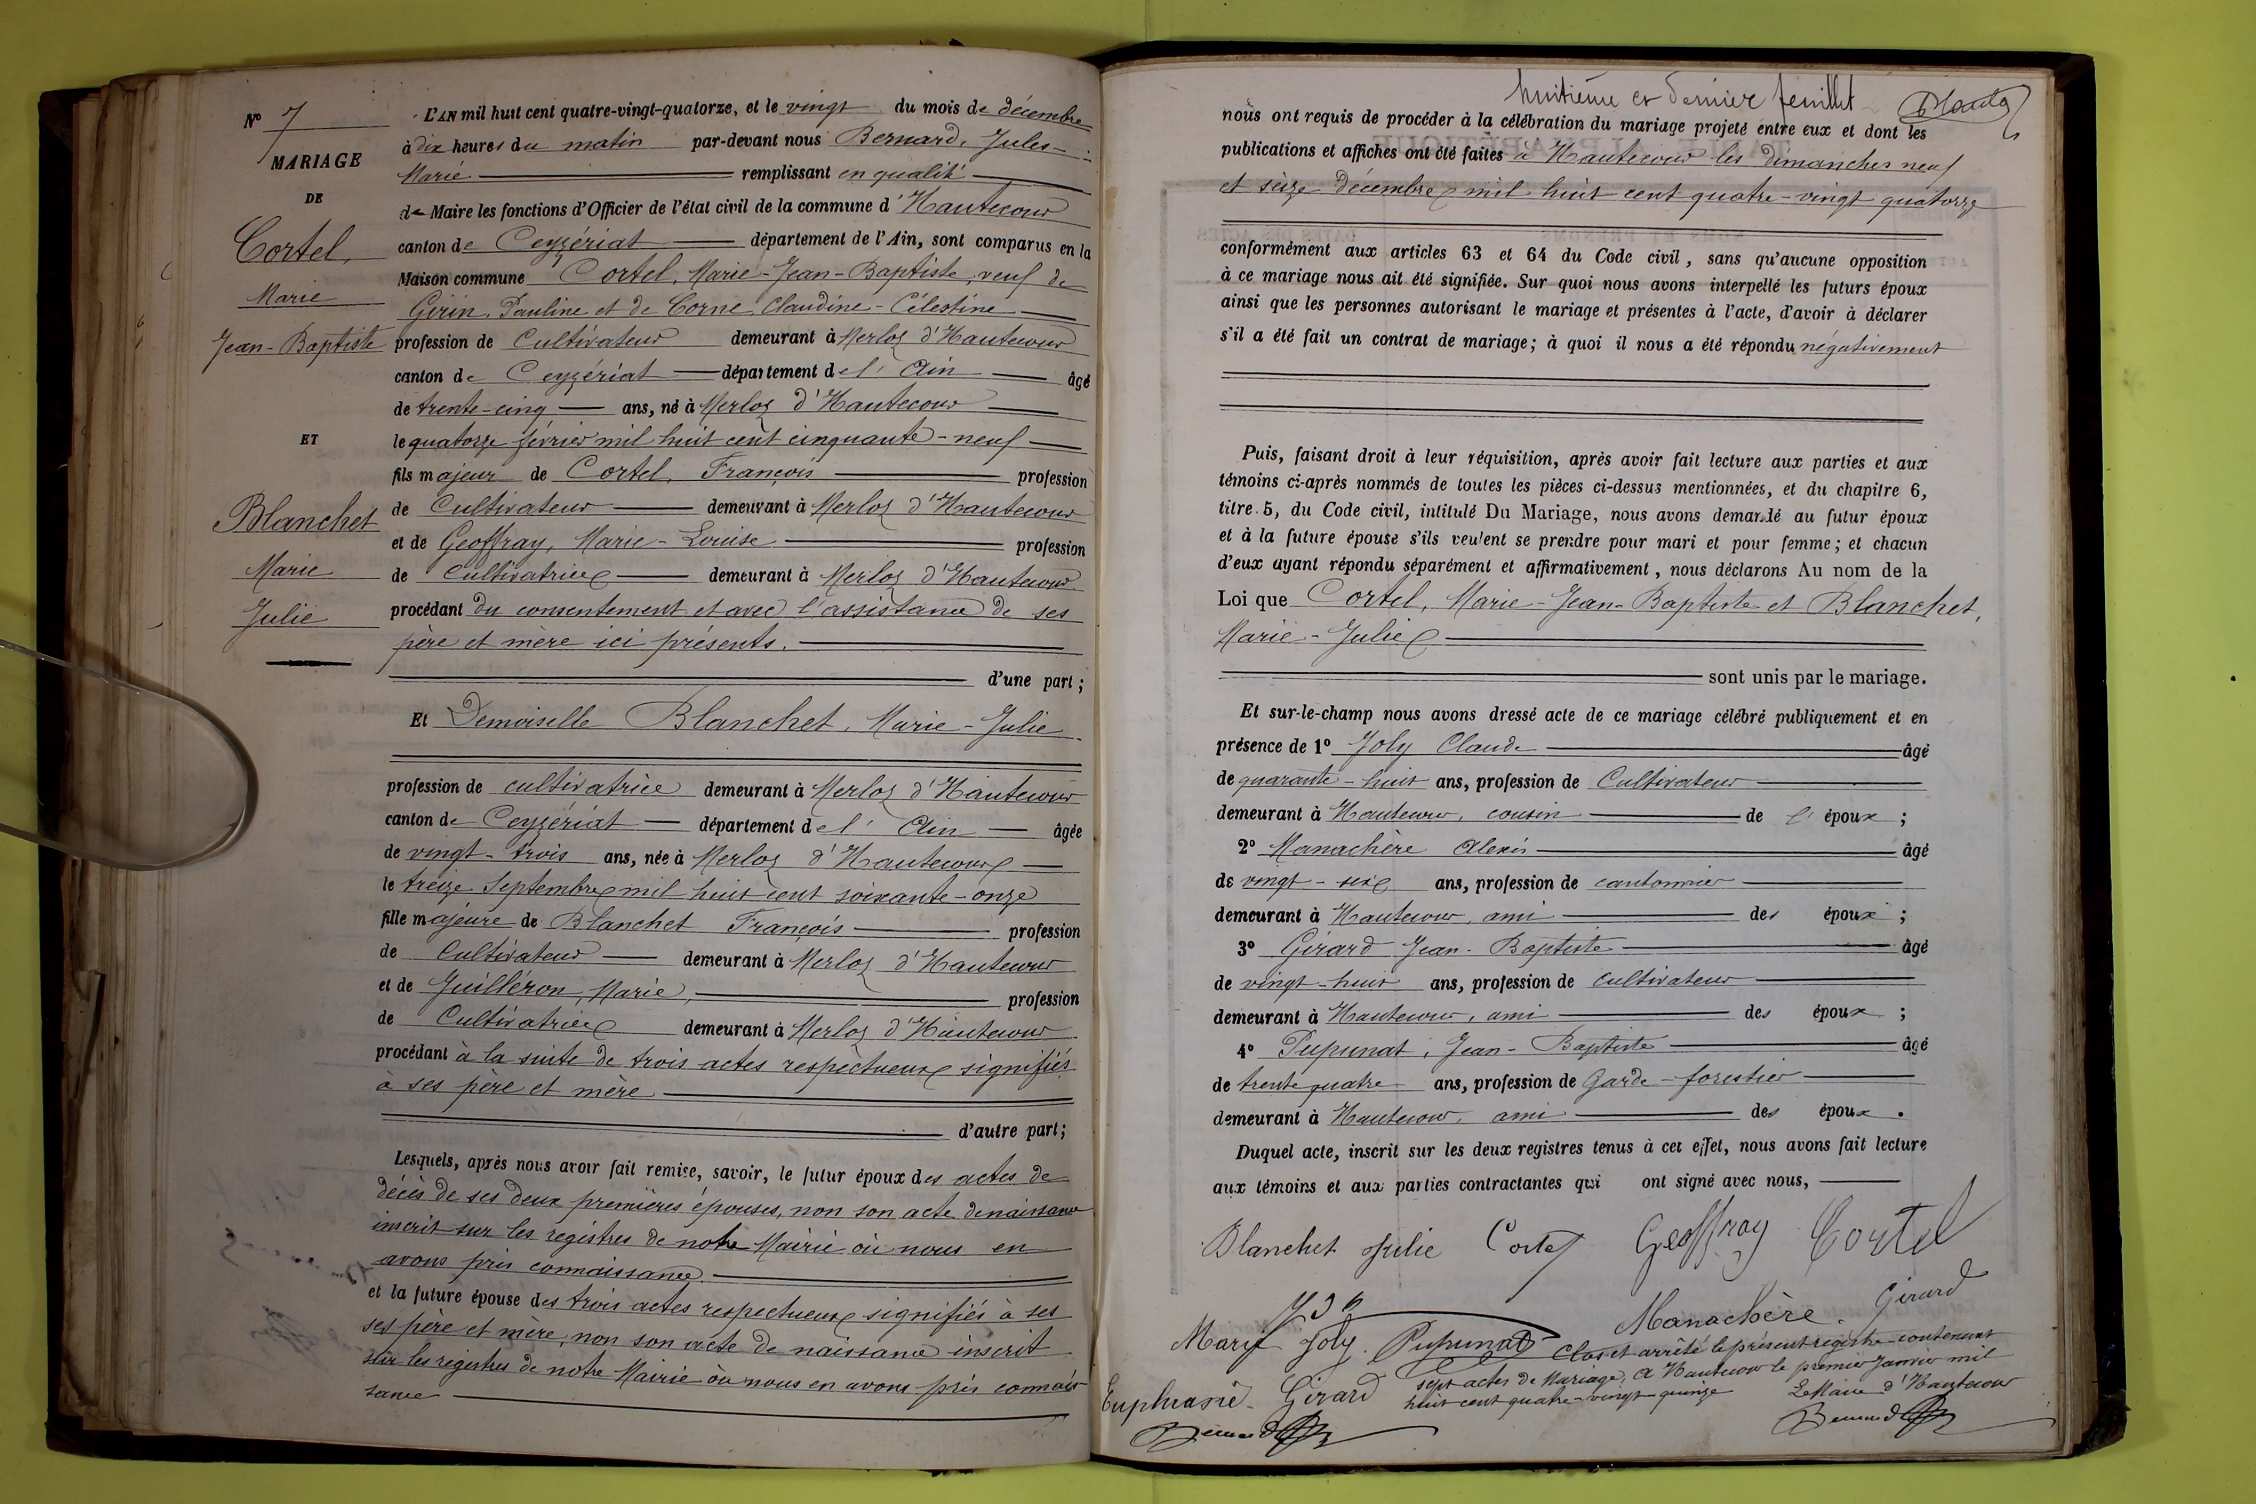 N° 7
MARIAGE
DE
Cortel,
Marie
Jean-Baptiste
ET
Blanchet
Marie
Julie
L'AN mil huit cent quatre-vingt-quatorze, et le vingt du mois de décembre
à dix heures du matin par-devant nous Bernard, Jules-
Marie remplissant en qualité
de Maire les fonctions d'Officier de l'état civil de la commune d'Hautecour
canton de Ceyzériat département de l'Ain, sont comparus en la
Maison commune Cortel, Marie-Jean-Baptiste, veuf de
Girin, Pauline et de Corne Claudine-Célestine
profession de Cultivateur demeurant à Merloz d'Hautecour
canton de Ceyzériat département de l'Ain âgé
de trente-cinq ans, né à Merloz d'Hautecour
le quatorze février mil huit cent cinquante-neuf
fils majeur de Cortel, François profession
de Cultivateur demeurant à Merloz d'Hautecour
et de Geoffray, Marie-Louise profession
de cultivatrice demeurant à Merloz d'Hautecour
procédant du consentement et avec l'assistance de ses
père et mère ici présents.
d'une part;
Et Demoiselle Blanchet, Marie-Julie
profession de cultivatrice demeurant à Merloz d'Hautecour
canton de Ceyzériat département de l'Ain âgée
de vingt-trois ans, née à Merloz d'Hautecour
le treize Septembre mil huit cent soixante-onze
fille majeure de Blanchet François profession
de Cultivateur demeurant à Merloz d'Hautecour
et de Juilléron, Marie, profession
de Cultivatrice demeurant à Merloz d'Hautecour
procédant à la suite de trois actes respectueux signifiés
à ses père et mère
d'autre part;
Lesquels, après nous avoir fait remise, savoir, le futur époux des actes de
décès de ses deux premières épouses, non son acte de naissance
inscrit sur les registres de notre Mairie où nous en
avons pris connaissance
et la future épouse des trois actes respectueux signifiés à ses
ses père et mère, non son acte de naissance inscrit
sur les registres de notre Mairie où nous en avons pris connais
sance
huitième et dernier feuillet
nous ont requis de procéder à la célébration du mariage projeté entre eux et dont les
publications et affiches ont été faites à Hautecour les dimanches neuf
et seize décembre mil huit cent quatre-vingt quatorze
conformément aux articles 63 et 64 du Code civil, sans qu'aucune opposition
à ce mariage nous ait été signifiée. Sur quoi nous avons interpellé les futurs époux
ainsi que les personnes autorisant le mariage et présentes à l'acte, d'avoir à déclarer
s'il a été fait un contrat de mariage; à quoi il nous a été répondu négativement
Puis, faisant droit à leur réquisition, après avoir fait lecture aux parties et aux
témoins ci-après nommés de toutes les pièces ci-dessus mentionnées, et du chapitre 6,
titre 5, du Code civil, intitulé Du Mariage, nous avons demandé au futur époux
et à la future épouse s'ils veulent se prendre pour mari et pour femme; et chacun
d'eux ayant répondu séparément et affirmativement, nous déclarons Au nom de la
Loi que Cortel, Marie-Jean-Baptiste et Blanchet,
Marie-Julie
sont unis par le mariage.
Et sur-le-champ nous avons dressé acte de ce mariage célébré publiquement et en
présence de 1° Joly Claude âgé
de quarante-huit ans, profession de Cultivateur
demeurant à Hautecour, cousin de l'époux;
2° Manachère Alexis âgé
de vingt-six ans, profession de cantonnier
demeurant à Hautecour, ami des époux;
3° Girard Jean-Baptiste âgé
de vingt-huit ans, profession de cultivateur
demeurant à Hautecour, ami des époux;
4° Pupunat, Jean-Baptiste âgé
de trente quatre ans, profession de Garde-forestier
demeurant à Hautecour, ami des époux.
Duquel acte, inscrit sur les deux registres tenus à cet effet, nous avons fait lecture
aux témoins et aux parties contractantes qui ont signé avec nous,
Blanchet Julie Cortel Geoffray Cortel
Joly Pupunat Manachère Girard
Euphrasie Girard
Bernard
Clos et arrêté le présent registre contenant
sept actes de Mariage, A Hautecour le premier Janvier mil
huit cent quatre-vingt quinze
Le Maire d'Hautecour
Bernard